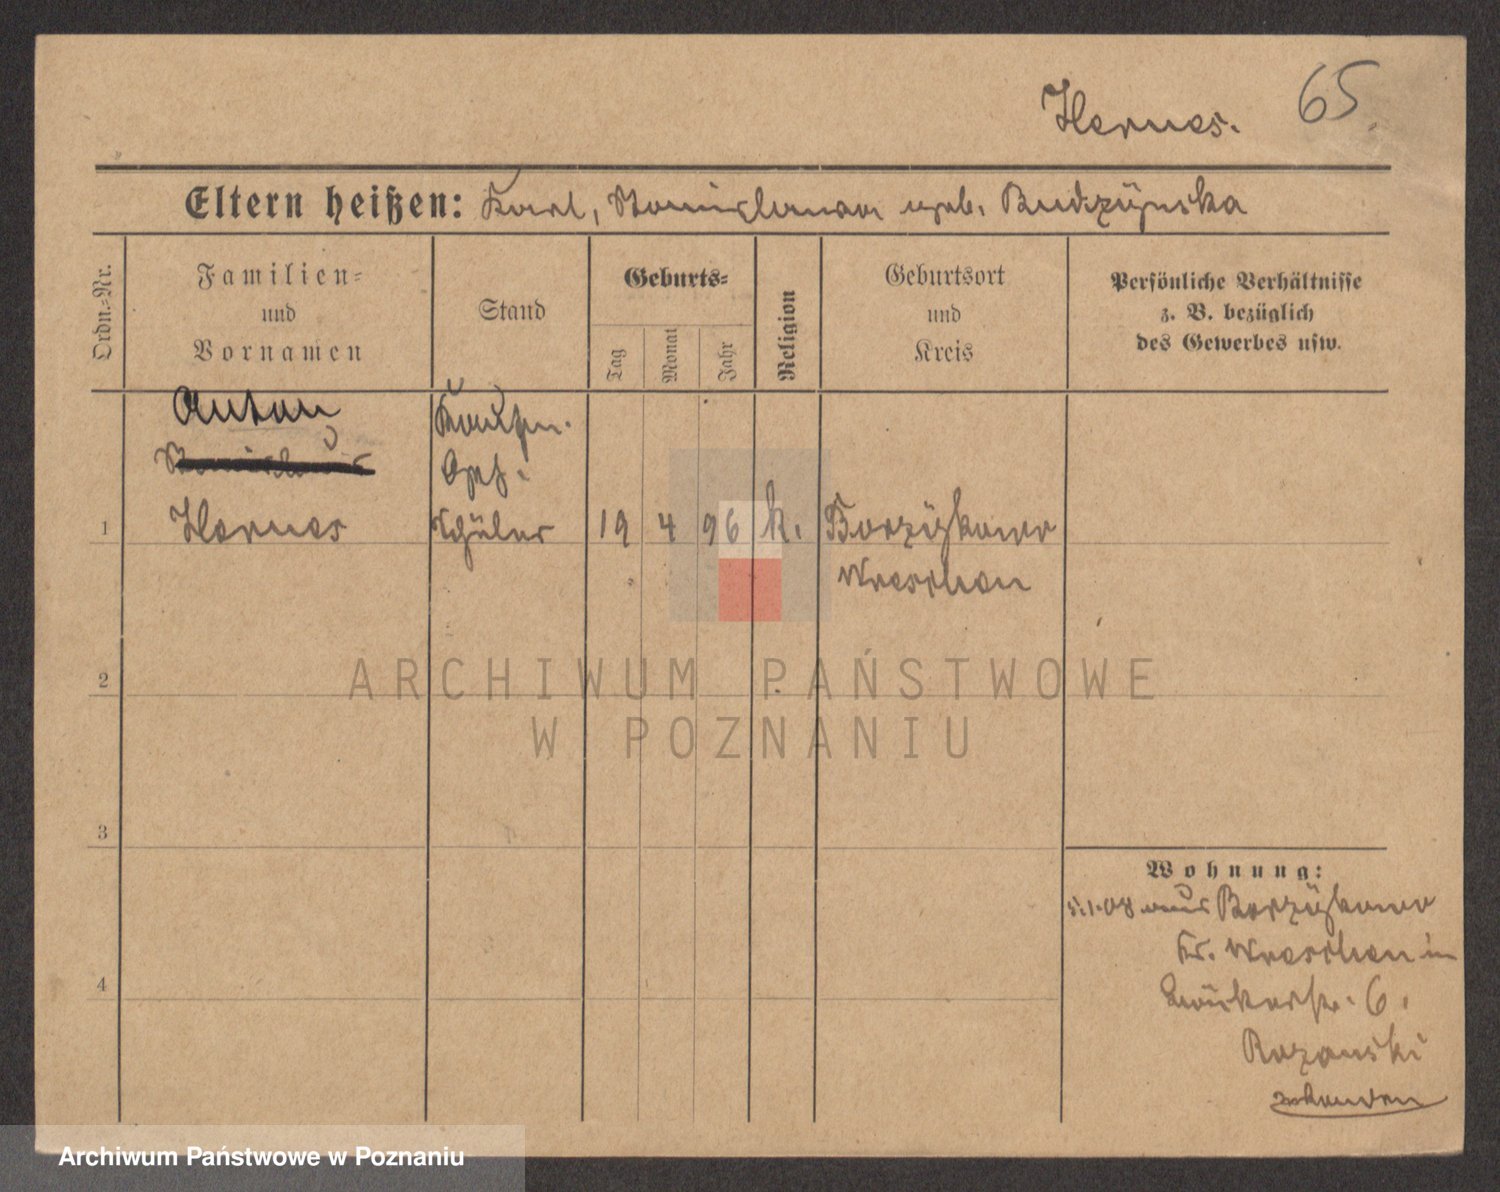 Hernes.
65
Eltern heißen: Karl, Stanislawa geb. Budzyńska
Ordn.-Nr.
Familien-
und
Vornamen
Stand
Geburts-
Tag
Monat
Jahr
Religion
Geburtsort
und
Kreis
Persönliche Verhältnisse
z. B. bezüglich
des Gewerbes usw.
Anton
Kaufm.
1
Hernes
Schüler
19
4
96
k.
Borzykowo
Wreschen
2
3
4
Wohnung:
5.1.08 aus Borzykowo
Kr. Wreschen in
6.
ARCHIWUM PAŃSTWOWE
W POZNANIU
Archiwum Państwowe w Poznaniu